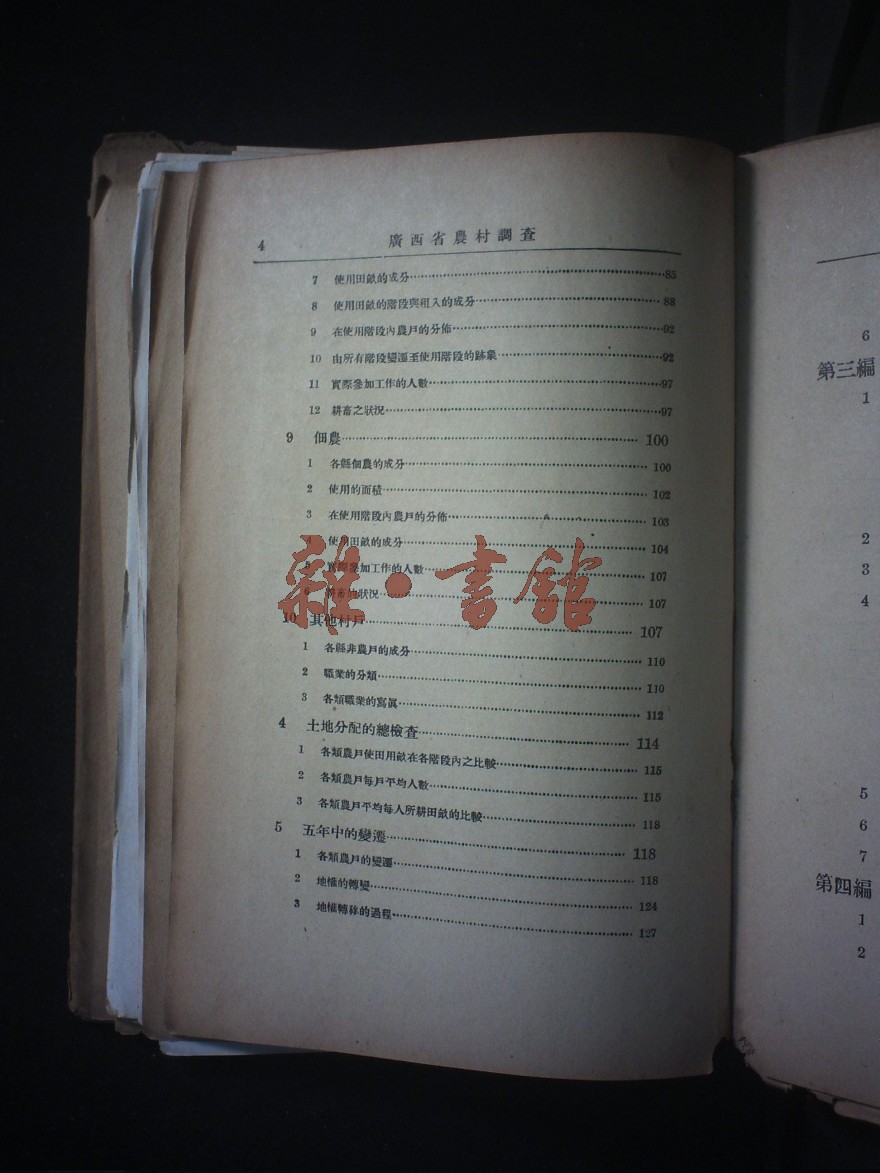 4 廣西省農村調查
7 使用田畝的成分 85
8 使用田畝的階段與租入的成分 88
9 在使用階段內農戶的分佈 92
10 由所有階段變遷至使用階段的跡象 92
11 實際參加工作的人數 97
12 耕畜之狀況 97
9 佃農 100
1 各縣佃農的成分 100
2 使用的面積 102
3 在使用階段內農戶的分佈 103
使用田畝的成分 104
5 實際參加工作的人數 107
狀況 107
10 其他村戶 107
1 各縣非農戶的成分 110
2 職業的分類 110
3 各類職業的寫眞 112
4 土地分配的總檢查 114
1 各類農戶使田用畝在各階段內之比較 115
2 各類農戶每戶平均人數 115
3 各類農戶平均每人所耕田畝的比較 118
5 五年中的變遷 118
1 各類農戶的變遷 118
2 地權的轉變 124
3 地權轉移的過程 127
雜·書館
6
第三編
1
2
3
4
5
6
7
第四編
1
2